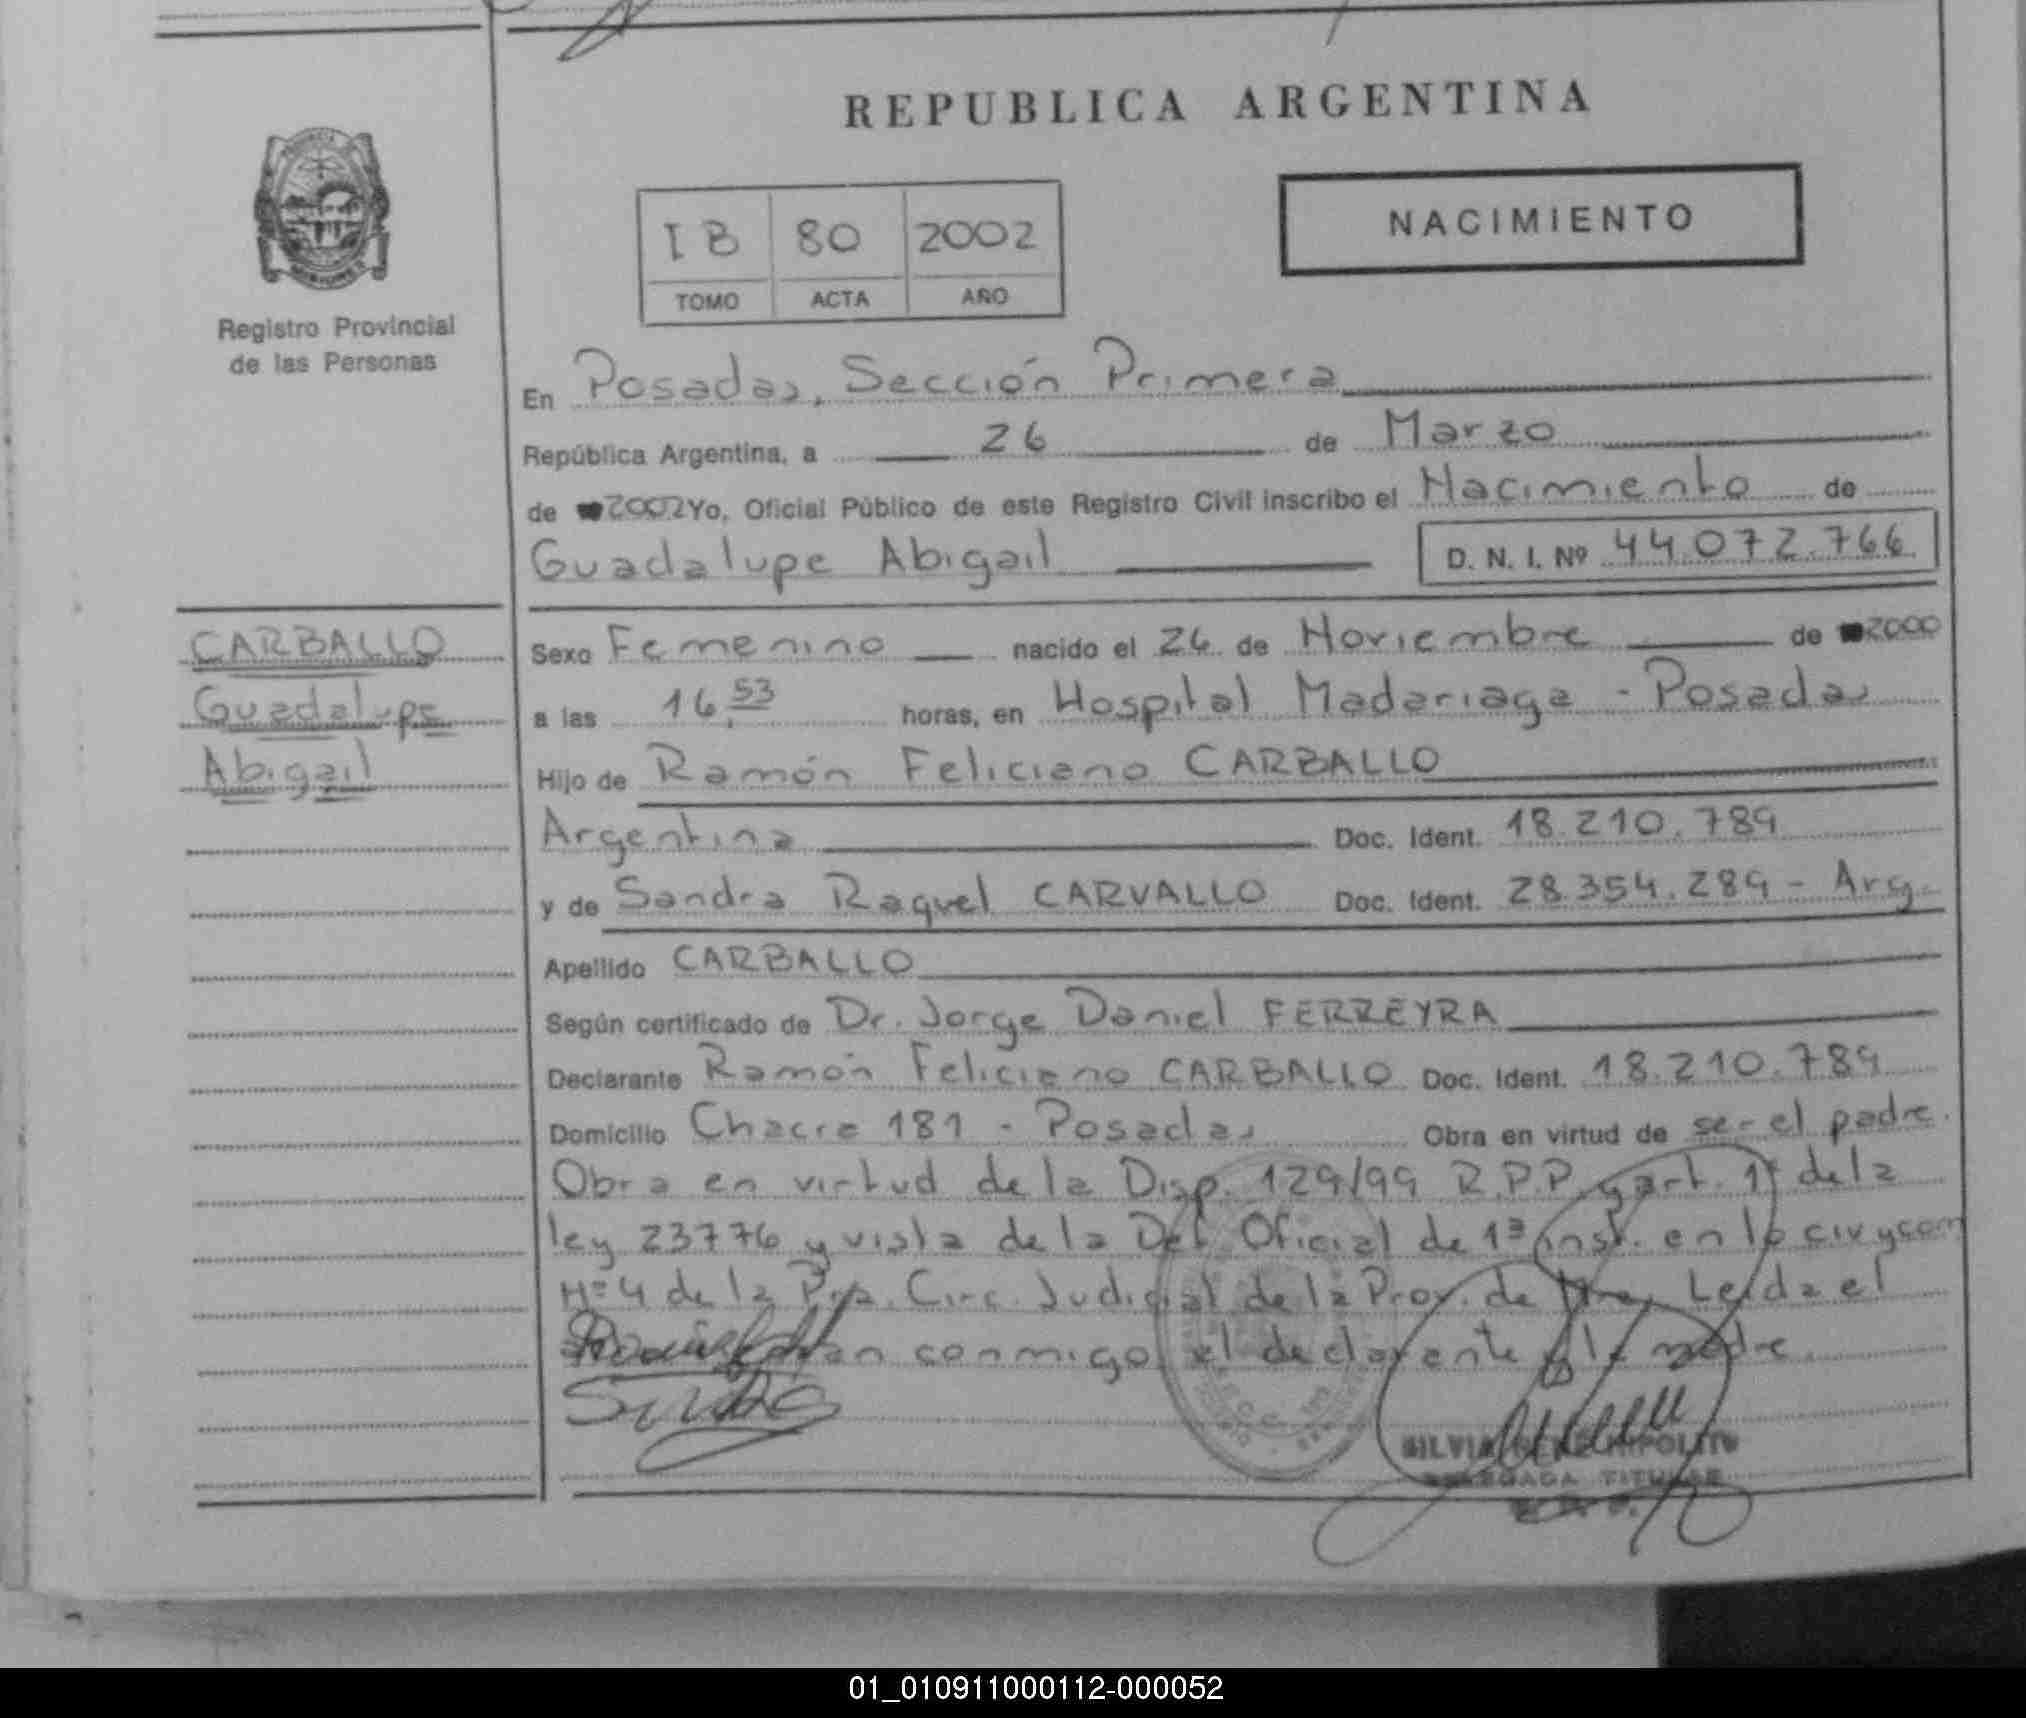 REPUBLICA ARGENTINA
NACIMIENTO
I B 80 2002
TOMO ACTA AÑO
Registro Provincial
de las Personas
En Posadas, Sección Primera
República Argentina, a 26 de Marzo
de 2002 Yo, Oficial Público de este Registro Civil inscribo el Nacimiento de
Guadalupe Abigail D. N. I. Nº 44.072.766
CARBALLO
Guadalupe
Abigail
Sexo Femenino nacido el 26 de Noviembre de 2000
a las 16,53 horas, en Hospital Madariaga - Posadas
Hijo de Ramón Feliciano CARBALLO
Argentina Doc. Ident. 18.210.789
y de Sandra Raquel CARVALLO Doc. Ident. 28.354.289 - Arg.
Apellido CARBALLO
Según certificado de Dr. Jorge Daniel FERREYRA
Declarante Ramón Feliciano CARBALLO Doc. Ident. 18.210.789
Domicilio Chacra 181 - Posadas Obra en virtud de ser el padre.
Obra en virtud de la Disp. 129/99 R.P.P. y art. 1º de la
ley 23776 y vista de la Def. Oficial de 1ª inst. en lo civ y com
Nº 4 de la Pra. Circ. Judicial de la Prov. de Mnes. Leída el
conmigo el declarante y la madre
SILVIA IRENE HIPOLITO
DELEGADA TITULAR
01_010911000112-000052